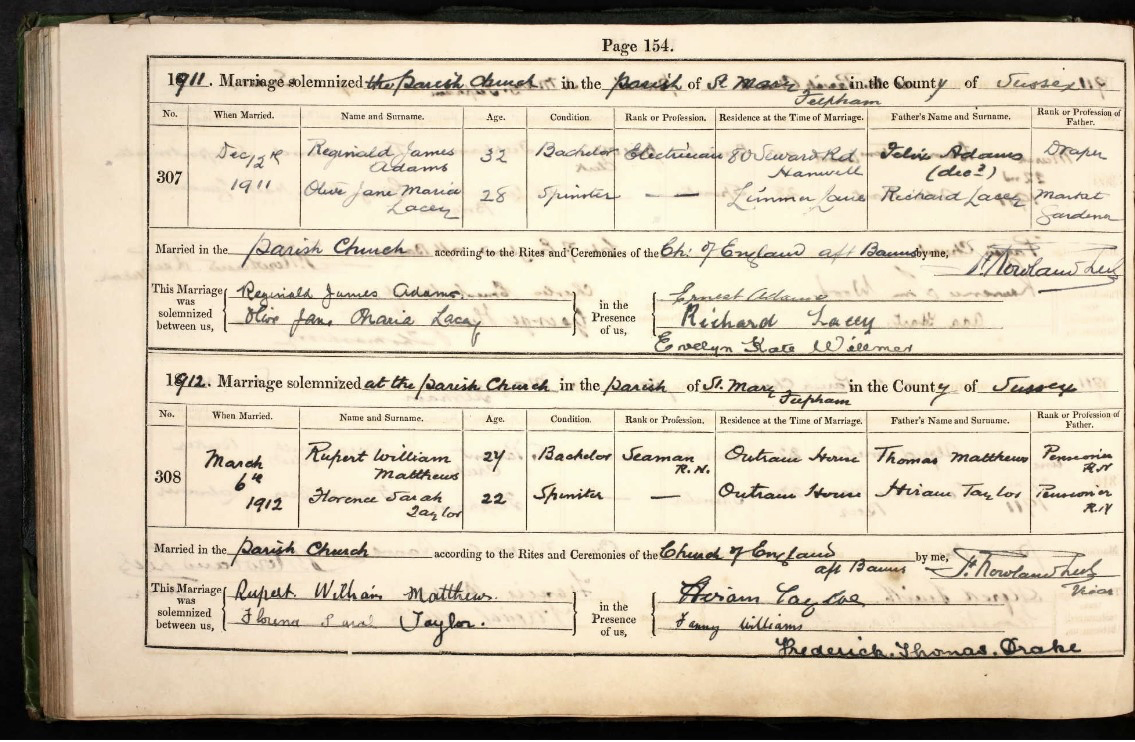 Page 154.
1911. Marriage solemnized the Parish Church in the Parish of St Mary Felpham in the County of Sussex
No. When Married. Name and Surname. Age. Condition. Rank or Profession. Residence at the Time of Marriage. Father's Name and Surname. Rank or Profession of Father.
307 Dec 12th 1911 Reginald James Adams 32 Bachelor Electrician 80 Seward Rd Hanwell Felix Adams (decd) Draper
Olive Jane Maria Lacey 28 Spinster — — Limmer Lane Richard Lacey Market Gardener
Married in the Parish Church according to the Rites and Ceremonies of the Ch: of England aft Banns by me,
This Marriage was solemnized between us, Reginald James Adams in the Presence of us, Ernest Adams
Olive Jane Maria Lacey Richard Lacey
Evelyn Kate Willmer
1912. Marriage solemnized at the Parish Church in the Parish of St. Mary Felpham in the County of Sussex
No. When Married. Name and Surname. Age. Condition. Rank or Profession. Residence at the Time of Marriage. Father's Name and Surname. Rank or Profession of Father.
308 March 6th 1912 Rupert William Matthews 24 Bachelor Seaman R.N. Outram House Thomas Matthews Pensioner R.N
Florence Sarah Taylor 22 Spinster — Outram House Hiram Taylor Pensioner R.N
Married in the Parish Church according to the Rites and Ceremonies of the Church of England aft Banns by me, Vicar
This Marriage was solemnized between us, Rupert William Matthews. in the Presence of us, Hiram Taylor
Taylor. Fanny Williams
Frederick. Thomas. Drake